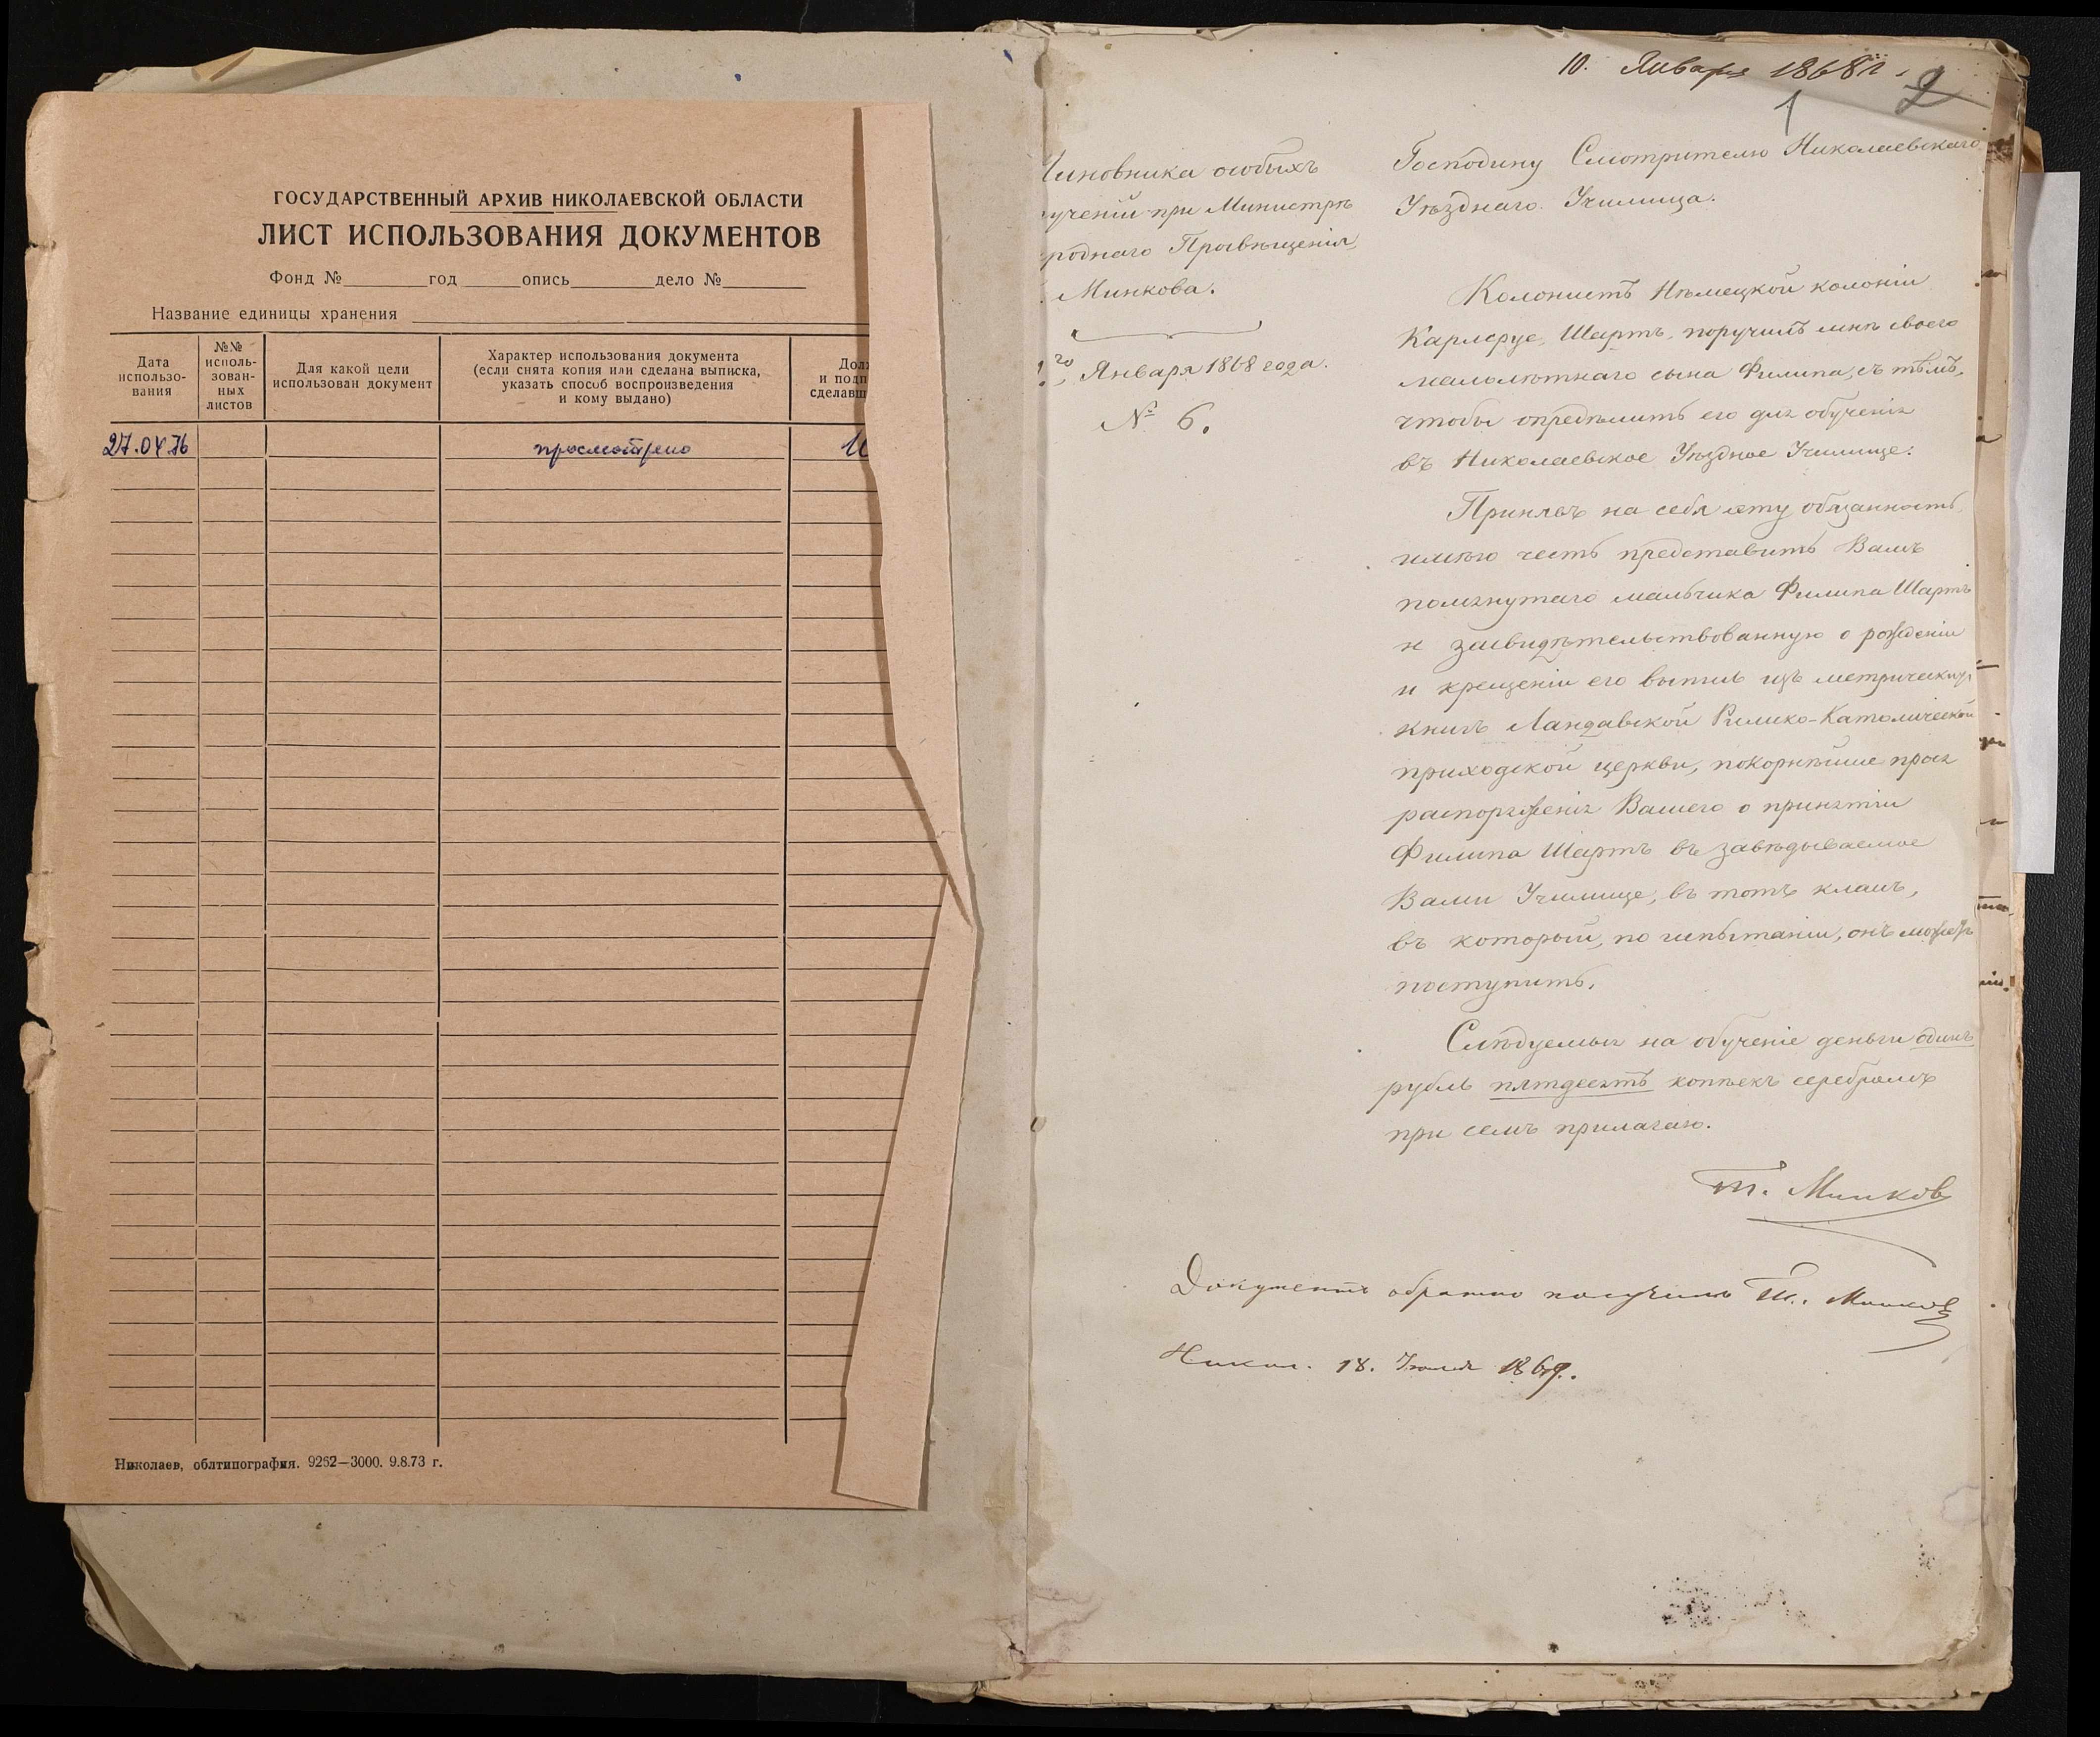 ГОСУДАРСТВЕННЫЙ АРХИВ НИКОЛАЕВСКОЙ ОБЛАСТИ
ЛИСТ ИСПОЛЬЗОВАНИЯ ДОКУМЕНТОВ
Фонд № год опись дело №
Название единицы хранения
Дата использо-вания
№№ исполь-зован-ных листов
Для какой цели использован документ
Характер использования документа
(если снята копия или сделана выписка,
указать способ воспроизведения
и кому выдано)
Дол
и подп
сделавш
27.04.76 просмотрено
Николаев, облтипография. 9262—3000. 9.8.73 г.
10. Января 1868 г.
1 2
Чиновника особыхъ
ученій при Министрѣ
роднаго Просвѣщенія,
Минкова.
Января 1868 года.
№ 6.
Господину Смотрителю Николаевскаго
Уѣзднаго Училища.
Колонистъ Нѣмецкой колоніи
Карлсруе, Шартъ, поручилъ мнѣ своего
малолѣтнаго сына Филипа, съ тѣмъ,
чтобы опредѣлить его для обученія
въ Николаевское Уѣздное Училище.
Принявъ на себя эту обязанность,
имѣю честь представить Вамъ
помянутаго мальчика Филипа Шартъ
и засвидѣтельствованную о рожденіи
и крещеніи его выпись изъ метрическихъ
книгъ Ландавской Римско-Католической
приходской церкви, покорнѣйше прося
распоряженія Вашего о принятіи
Филипа Шартъ въ завѣдываемое
Вами Училище, въ тотъ классъ,
въ который, по испытаніи, онъ можетъ
поступить.
Слѣдуемыя на обученіе деньги одинъ
рубль пятдесятъ копѣекъ серебромъ
при семъ прилагаю.
Т. Минков
Документъ обратно получилъ Т. Минков
Никол. 18. 1869.